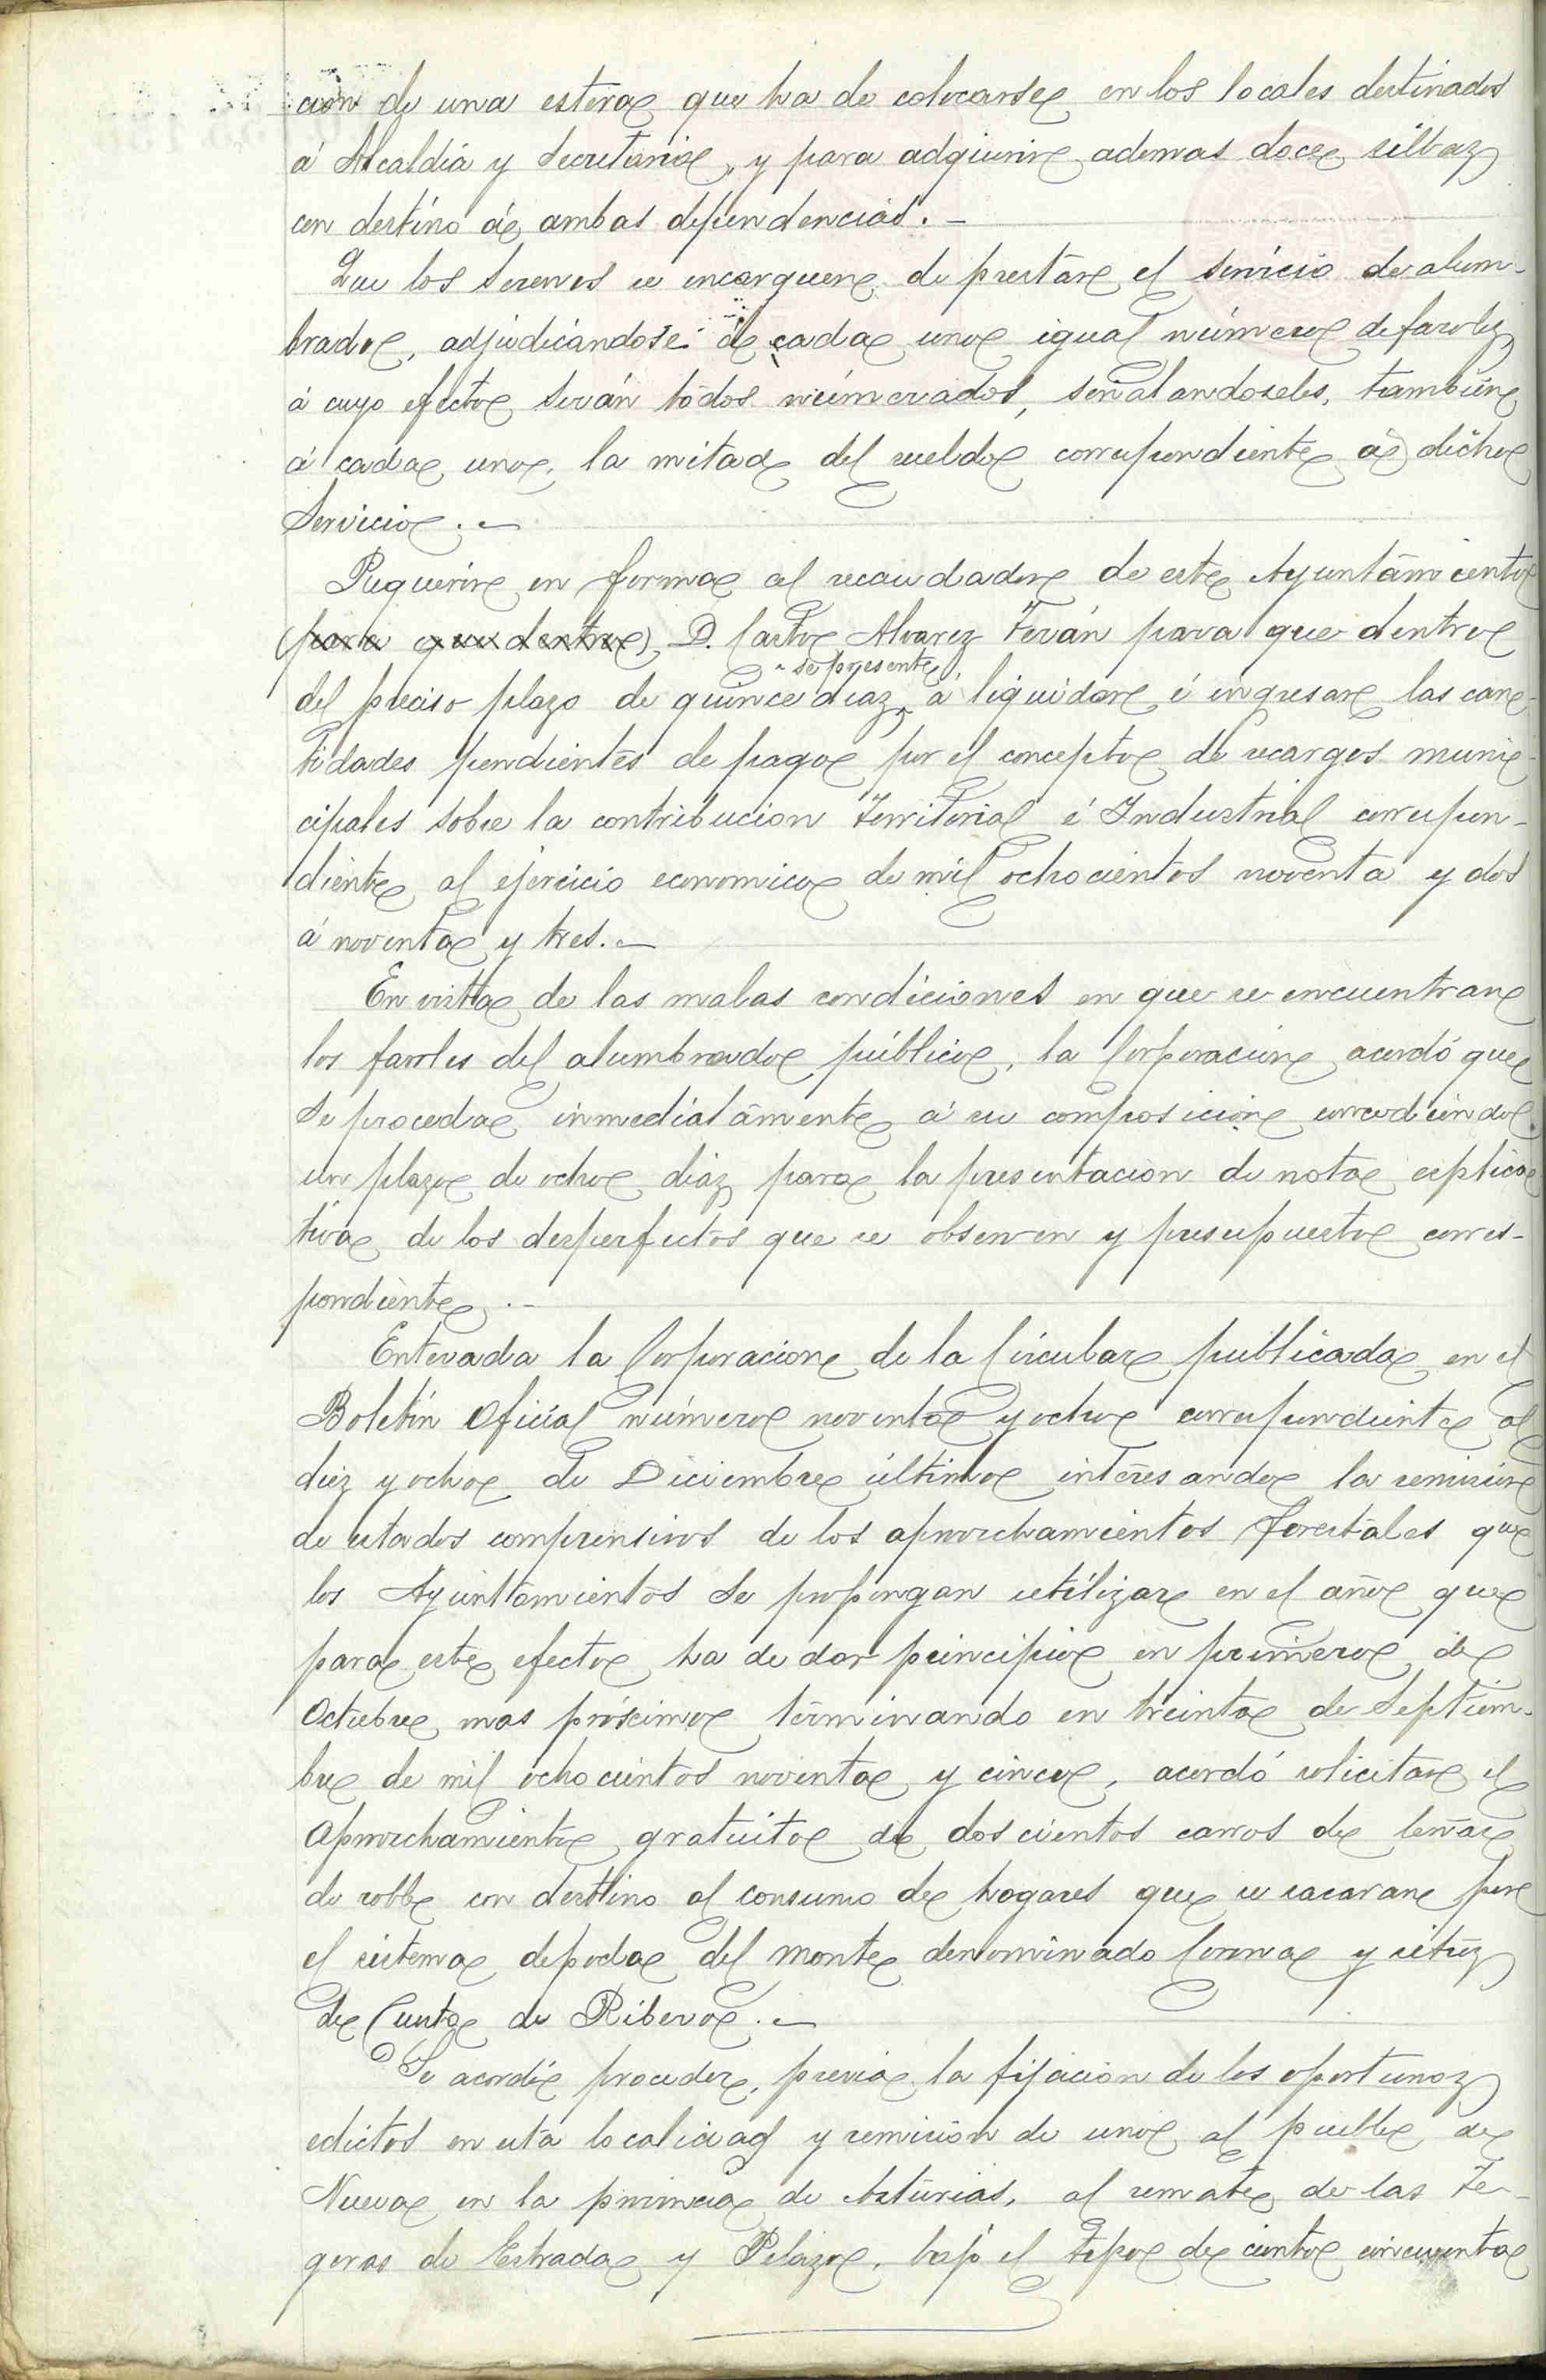 cion de una estera que ha de colocarse en los locales destinados
á Alcaldia y Secretaria, y para adquirir ademas doce sillas
con destino á ambas dependencias.
Que los serenos se encarguen de prestar el servicio de alum-
brado, adjudicándose á cada uno igual número de faroles,
á cuyo efecto serán todos númerados, señalandoseles, tambien
á cada uno, la mitad del sueldo correspondiente á dicho
Servicio.
Requerir en forma al recaudador de este Ayuntamiento
(para que dentro) D. Castor Alvarez Terán para que dentro
se presente
del preciso plazo de quince dias, á liquidar é ingresar las can-
tidades pendientes de pago por el concepto de recargos muni-
cipales sobre la contribucion Territorial é Industrial correspon-
diente al ejercicio economico de mil ochocientos noventa y dos
á noventa y tres.
En vista de las malas condiciones en que se encuentran
los faroles del alumbrado público, la Corporacion acordó que
se proceda inmediatamente á su composicion concediendo
un plazo de ocho dias para la presentacion de nota esplica
tiva de los desperfectos que se observen y presupuesto corres-
pondiente.
Enterada la Corporacion de la Circular publicada en el
Boletin Oficial número noventa y ocho correspondiente al
diez y ocho de Diciembre último interesando la remision
de estados comprensivos de los aprovechamientos forestales que
los Ayuntamientos se propongan utilizar en el año que
para este efecto ha de dar principio en primero de
Octubre mas prócsimo terminando en treinta de Septiem-
bre de mil ochocientos noventa y cinco, acordó solicitar el
aprovechamiento gratuito de doscientos carros de leña
de roble con destino al consumo de hogares que se sacaran por
el sistema de poda del monte denominado Corona y sitio
de Cunta de Ribero.
Se acordó proceder, previa la fijacion de los oportunos
edictos en esta localidad y remision de uno al pueblo de
Nueva en la provincia de Asturias, al remate de las Te-
geras de Estrada y Pelazo, bajo el tipo de ciento cincuenta